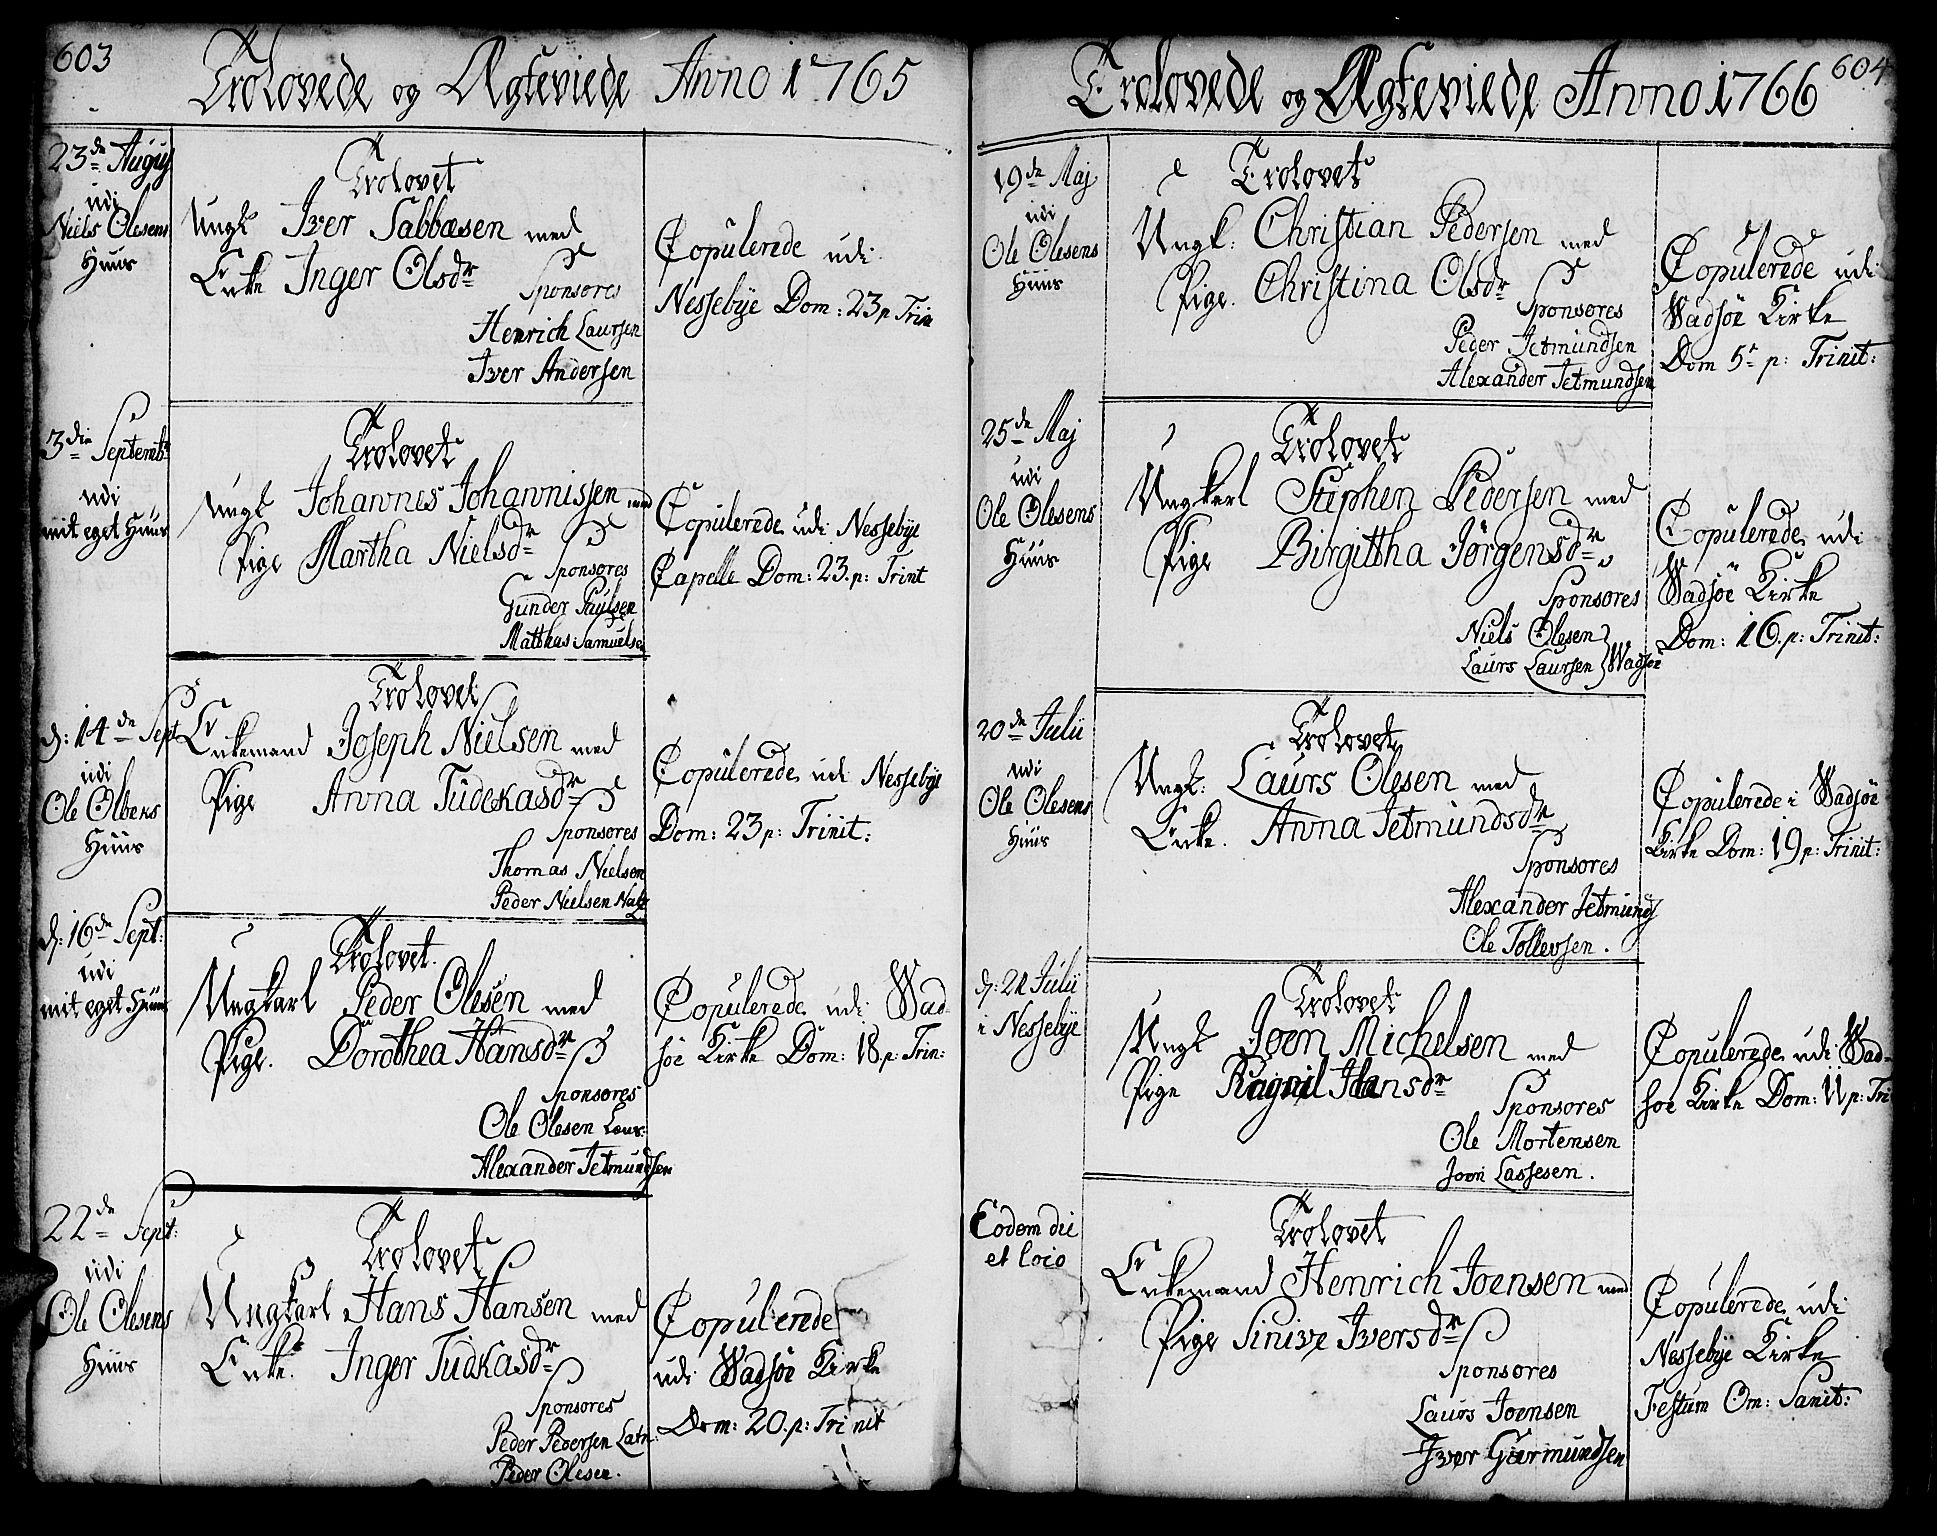 603
Trolovede og Ægteviede Anno 1765
23de Augus
udi
Niels Olesens
Huus
Trolovet
Ungk Iver Sabbæsen med
Enke Inger Olsdr
Sponsores
Henrich Laursen
Iver Andersen
Copulerede udi
Nessebye Dom: 23 p Trin
3die Septembr
udi
mit eget Huus
Trolovet
Ungk Johannes Johannissen med
Pige Martha Nielsdr
Sponsores
Gunder Paulsen
Matthas Samuelse
Copulerede udi Nessebye
Capelle Dom: 23. p: Trint
d: 14de Sept
udi
Ole Olsens
Huus
Trolovet
Enkemand Joseph Nielsen med
Pige Anna Tudekasdr
Sponsores
Thomas Nielsen
Peder Nielsen
Copulerede udi Nessebye
Dom: 23 p: Trinit:
d: 16de Sept:
udi
mit eget Huus
Trolovet
Ungkarl Peder Olesen med
Pige. Dorothea Hansdr
Sponsores
Ole Olesen Laur:
Alexander Jetmundsen
Copulerede udi Wad
søe Kirke Dom: 18. p: Trin:
22de Sept:
udi
Ole Olesens
Huus
Trolovet
Ungkarl Hans Hansen med
Enke. Inger Tudkasdr
Sponsores
Peder Pedersen
Peder Olesen.
Copulerede
udi Wadsøe Kirke
Dom: 20. p: Trinit
604
Trolovede og Ægteviede Anno 1766
19de Maj
udi
Ole Olesens
Huus
Trolovet
Ungk: Christian Pedersen med
Pige. Christina Olsdr
Sponsores
Peder Jetmundsen
Alexander Jetmundsen
Copulerede udi
Wadsøe Kirke
Dom 5te p: Trinit:
25de Maj
udi
Ole Olesens
Huus
Trolovet
Ungkarl Stephen Pedersen med
Pige Birgittha Jørgensdr
Sponsores
Niels Olesen
Laurs Laursen } Wadsøe
Copulerede udi
Wadsøe Kirke
Dom: 16. p: Trinit:
20de Julii
udi
Ole Olesens
Huus
Trolovet
Ungk. Laurs Olesen med
Enke. Anna Jetmundsdr
Sponsores
Alexander Jetmunds
Ole Tollevsen.
Copulerede i Wadsøe
Kirke Dom: 19 p: Trinit:
d: 21 Julii
i Nessebye
Trolovet
Ungk Joen Michelsen med
Pige Ragnil Hansdr
Sponsores
Ole Mortensen
Joen Lassesen.
Copulerede udi Wad-
søe Kirke Dom: 11 p: Tri
Eodem die
et loco
Trolovet
Enkemand Henrich Joensen med
Pige Sinive Iversdr
Sponsores
Laurs Joensen
Iver Garmundsen
Copulerede udi
Nessebye Kirke
Festum Om: Sanit: